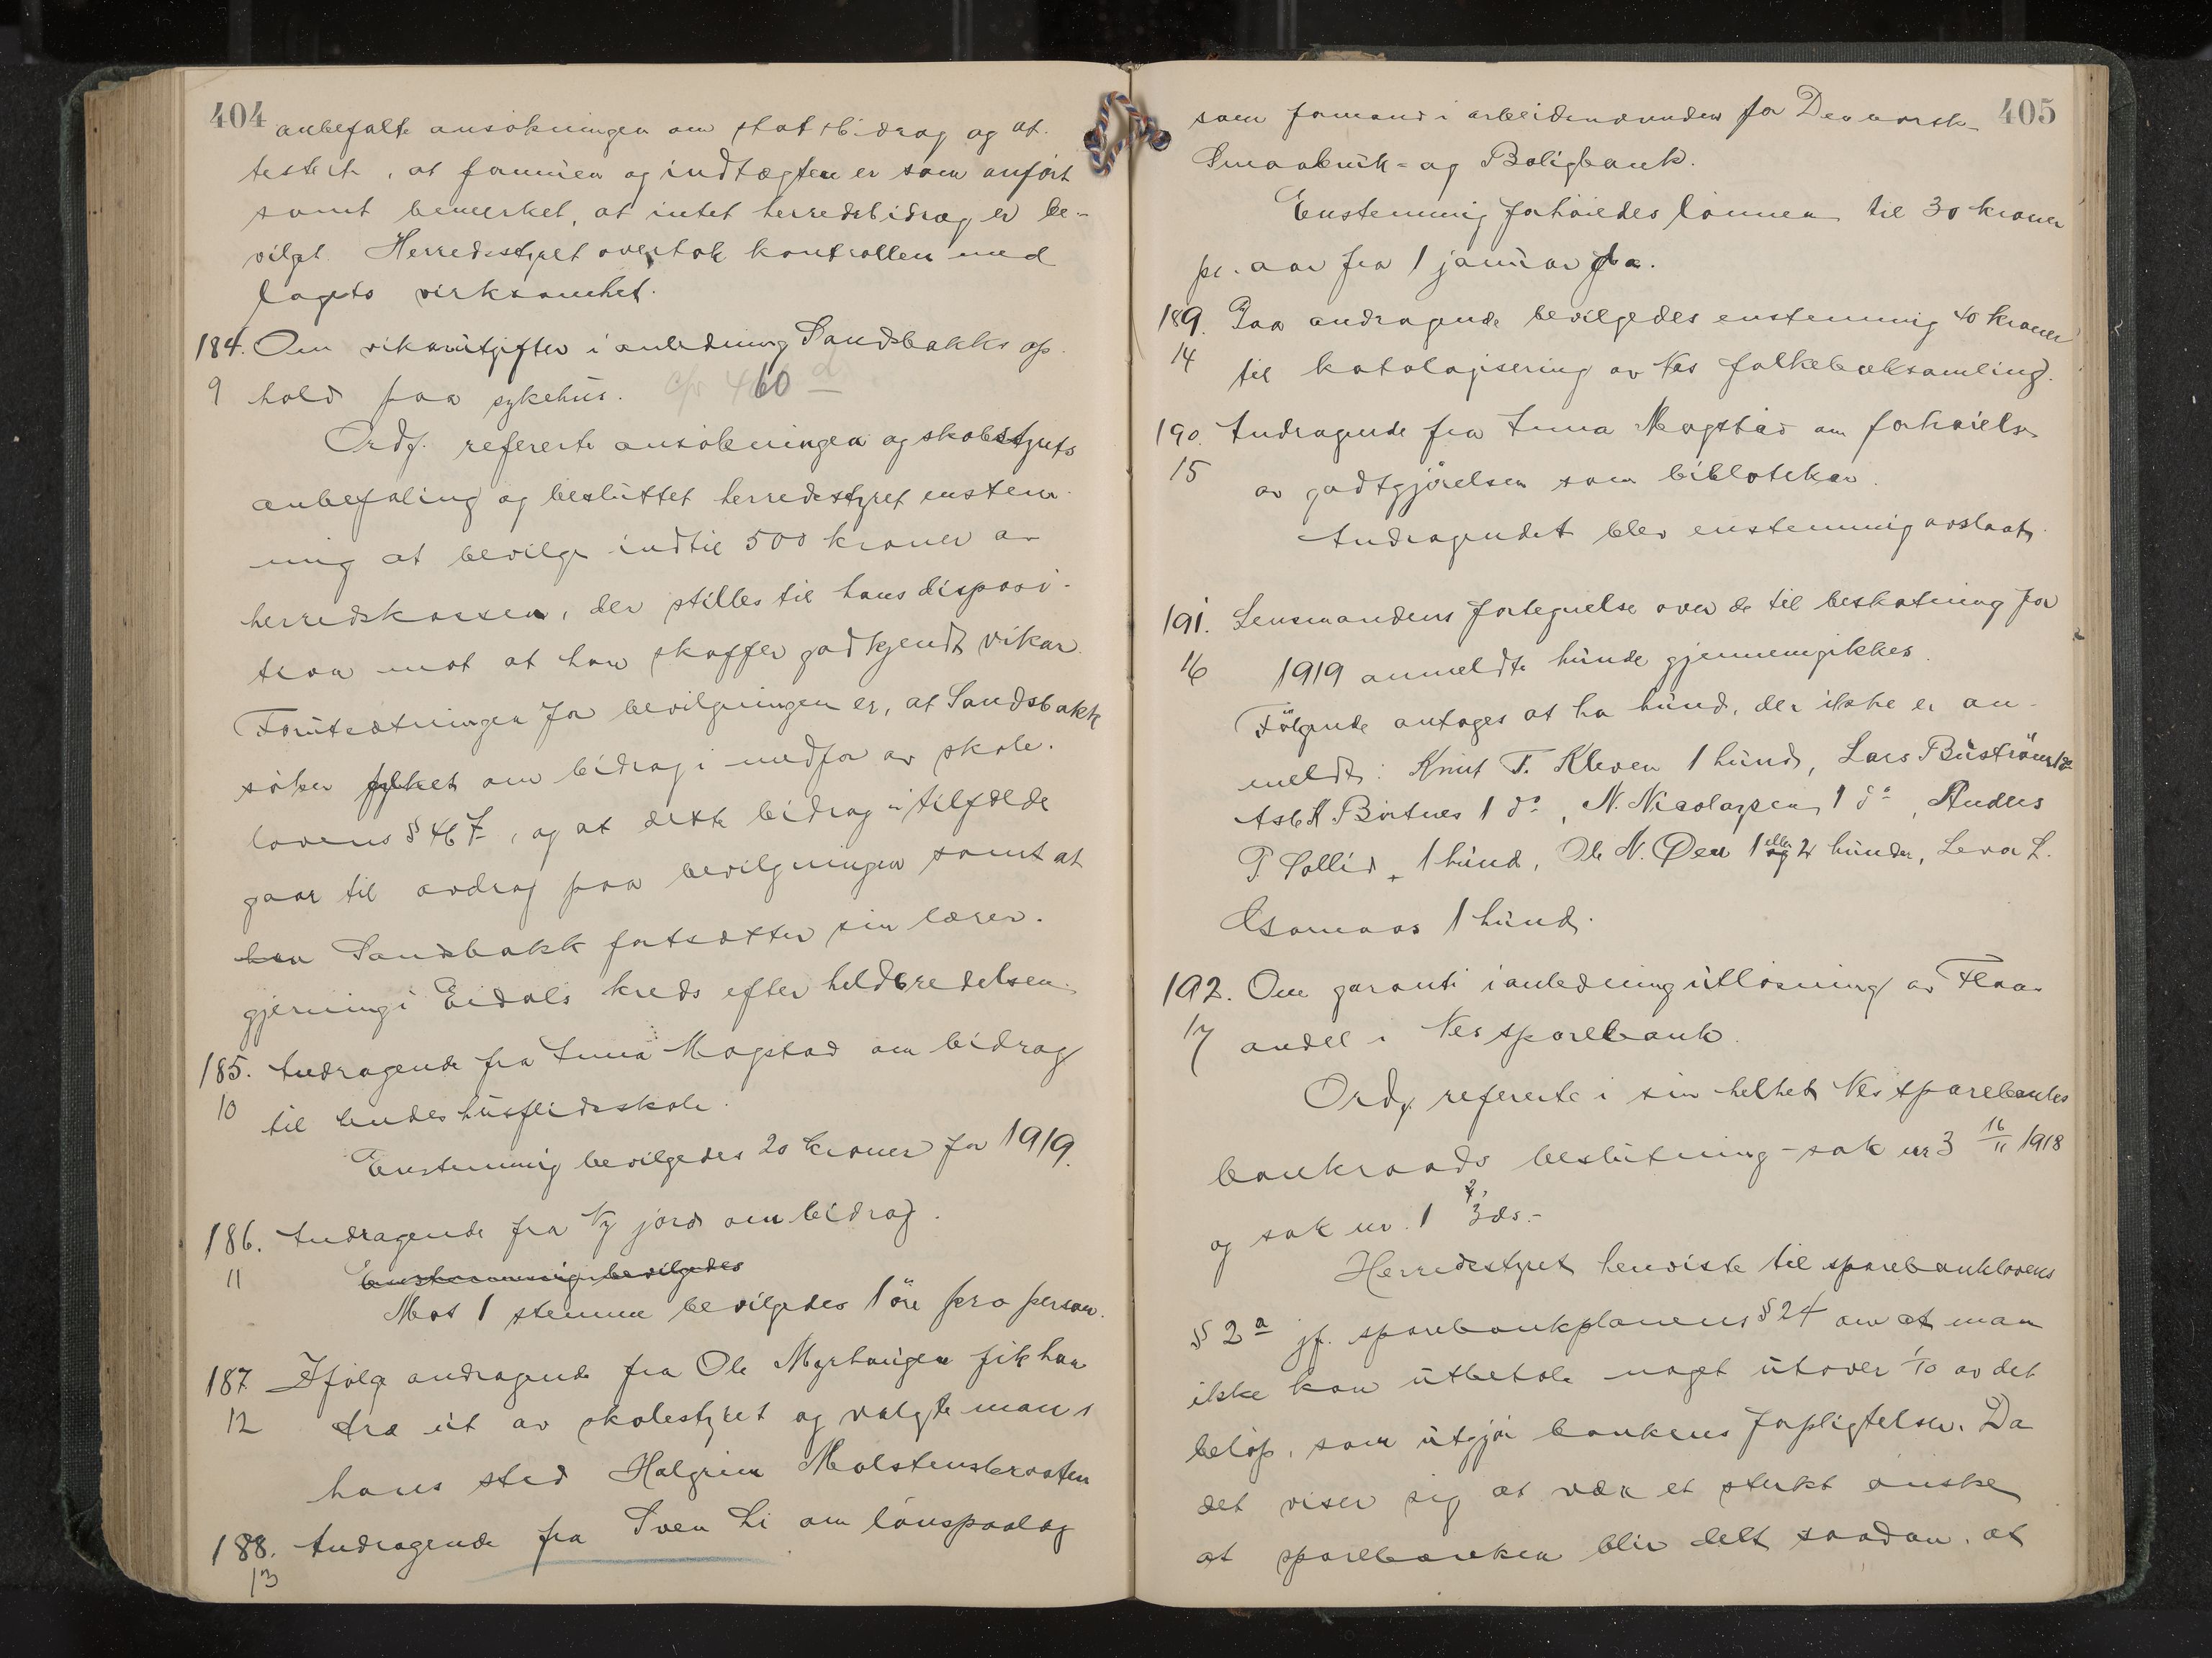 404
anbefalte ansökningen om statsbidrag og at-
testerte, at formuen og indtægten er som anfört
samt bemerket, at intet herredsbidrag er be-
vilget. Herredsstyret overtok kontrollen med
lagets virksomhet.
184. Om vikarutgifter i anledning Sandsbakks op-
9 hold paa sykehus. 460 d
Ordf. refererte ansökningen og skolestyrets
anbefaling og besluttet herredsstyret enstem-
mig at bevilge indtil 500 kroner av
herredskassen, der stilles til hans disposi-
tion mot at han skaffer godkjendt vikar.
Forutsætningen for bevilgningen er, at Sandsbakk
söker fylket om bidrag i medfør av skole-
lovens § 46 7, og at dette bidrag i tilfælde
gaar til avdrag paa bevilgningen samt at
han Sandsbakk fortsætter sin lærer-
gjerning i Eidals kreds efter helbredelsen.
185. Andragende fra Anna Magstad om bidrag
10 til hendes husflidsskole.
Enstemmig bevilgedes 20 kroner for 1919.
186. Andragende fra Ny jord om bidrag.
11 Enstemmig bevilgedes
Mot 1 stemme bevilgedes 1 öre pro person.
187 Ifölge andragende fra Ole Myrhaugen fik han
12 træ ut av skolestyret og valgte man i
hans sted Halgrim Molstensbraaten
188. Andragende fra Sven Li om lönspaalag
13
405
som formand i arbeidernævnden for Den norsk-
Smaabruk- og Boligbank.
Enstemmig forhöiedes lönnen til 30 kroner
pr. aar fra 1 januar
189. Paa andragende bevilgedes enstemmig 40 kroner
14 til katalogisering av Nes folkeboksamling.
190. Andragende fra Anna Magstad om forhöielse
15 av godtgjörelsen som bibliotekar.
Andragendet blev enstemmig avslaat.
191. Lensmandens fortegnelse over de til beskatning for
16 1919 anmeldte hunde gjennemgikkes.
Fölgende antages at ha hund, der ikke er an-
meldt: Knut T. Kleven 1 hund, Lars Buström 1 do
Asle K Börtnes 1 do, N. Nicolaysen 1 do, Anders
P Sollid 1 hund, Ole N. Öen 1 eller og 2 hunder, Levor L.
1 hund.
192. Om garanti i anledning utlösning av Flaa-
17 andel i Nes sparebank.
Ordf. refererte i sin helhet Nes sparebanks
bankraads beslutning - sak nr 3 16/11 1918
og sak nr. 1 2/3 ds.-
Herredsstyret henviste til sparebanklovens
§ 2 a jf. sparebankplanens § 24 om at man
ikke kan utbetale noget utover 1/10 av det
belöp, som utgjör bankens forpligtelser. Da
det viser sig at være et sterkt önske
at sparebanken blir delt saadan, at